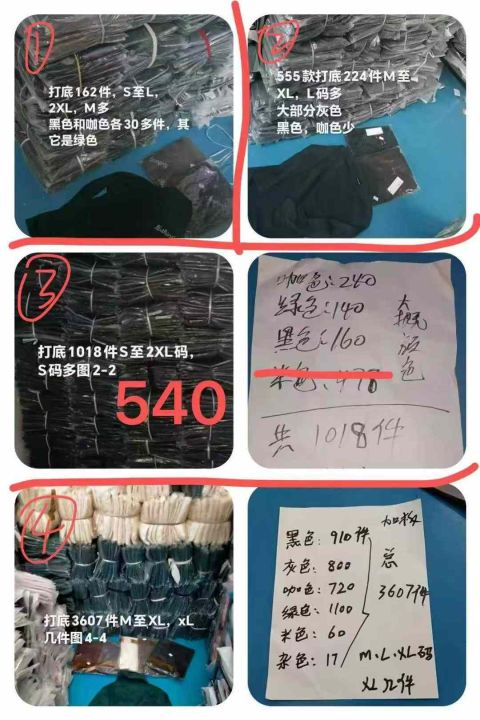 1
打底162件，S至L，
2XL，M多
黑色和咖色各30多件，其
它是绿色
2
555款打底224件M至
XL，L码多
大部分灰色
黑色，咖色少
3
打底1018件S至2XL码，
S码多图2-2
540
咖色:240
绿色:140
黑色:160
米色:478
共 1018件
大概颜色
4
打底3607件M至XL，xL
几件图4-4
黑色: 910件
灰色: 800
咖色: 720
绿色: 1100
米色: 60
杂色: 17
总
3607件
M·L·XL码
XL几件